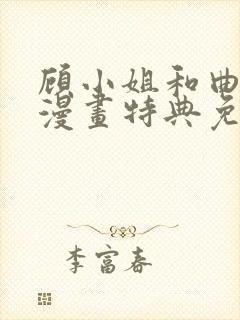 顾小姐和曲
漫畫特典免
李富春